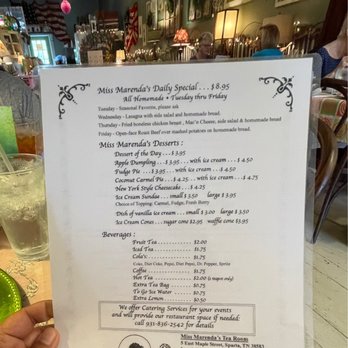 Miss Marenda's Daily Special ... $8.95
All Homemade • Tuesday thru Friday
Tuesday - Seasonal Favorite, please ask
Wednesday - Lasagna with side salad and homemade bread.
Thursday - Fried boneless chicken breast, Mac'n Cheese, side salad & homemade bread.
Friday - Open-Face Roast Beef over mashed potatoes on homemade bread.
Miss Marenda's Desserts :
Dessert of the Day ... $3.95
Apple Dumpling ... $3.95 with ice cream ... $4.50
Fudge Pie ... $3.95 with ice cream ... $4.50
Coconut Carmel Pie ... $4.25 with ice cream ... $4.75
New York Style Cheesecake ... $4.25
Ice Cream Sundae ... small $3.50 large $3.95
Choice of Topping: Carmel, Fudge, Fresh Berry
Dish of vanilla ice cream ... small $3.00 large $3.50
Ice Cream Cones ... sugar cone $2.95 waffle cone $3.95
Beverages :
Fruit Tea ... $2.00
Iced Tea ... $1.75
Cola's ... $1.75
Coke, Diet Coke, Pepsi, Diet Pepsi, Dr. Pepper, Sprite
Coffee ... $1.75
Hot Tea ... $2.00
Extra Tea Bag ... $0.75
To Go Ice Water ... $0.75
Extra Lemon ... $0.50
We offer Catering Services for your events
and will provide our restaurant space if needed;
call 931-836-2542 for details
Miss Marenda's Tea Room
5 East Maple Street, Sparta, TN 38583